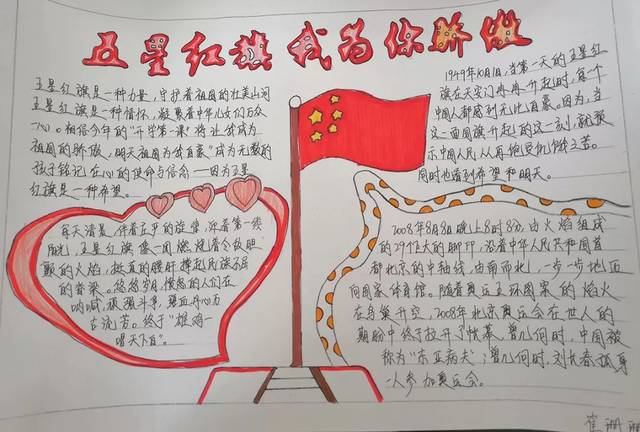 五星红旗 我为你骄傲
五星红旗是一种力量，守护着祖国的壮美山河
五星红旗是一种情怀，凝聚着中华儿女们万众
一心。相信今年的“开学第一课”将让我成为
祖国的骄傲，明天祖国为我自豪”成为无数的
孩子铭记在心的使命与信念——因为五星
红旗是一种希望。
1949年10月1日，当第一天的五星红
旗在天安门冉冉升起时，每个
中国人都感到无比自豪。因为，当
这一面国旗升起的这一刻，就预
示中国人民从再饱受饥饿之苦。
同时也看到希望和明天。
每天清晨，伴着庄严的旋律，迎着第一缕
阳光，五星红旗像一团燃烧着
的火焰，挺直的腰肝撑起民族不屈
的脊梁。悠悠岁月，惟悴的人们在
呐喊，顽强斗争，碧血丹心为
古流芳。终于“雄鸡一
唱天下白”。
2008年8月8日晚上8时8分，由火焰组成
的29个巨大的脚印，沿着中华人民共和国首
都北京的中轴线，由南而北，一步一步地迈
向国家体育馆。随着奥运五环图案的焰火
在鸟巢升空，2008年北京奥运会在世人的
期盼中终于拉开了帷幕。曾几何时，中国被
称为“东亚病夫”；曾几何时，刘长春孤身
一人参加奥运会。
崔珊珊